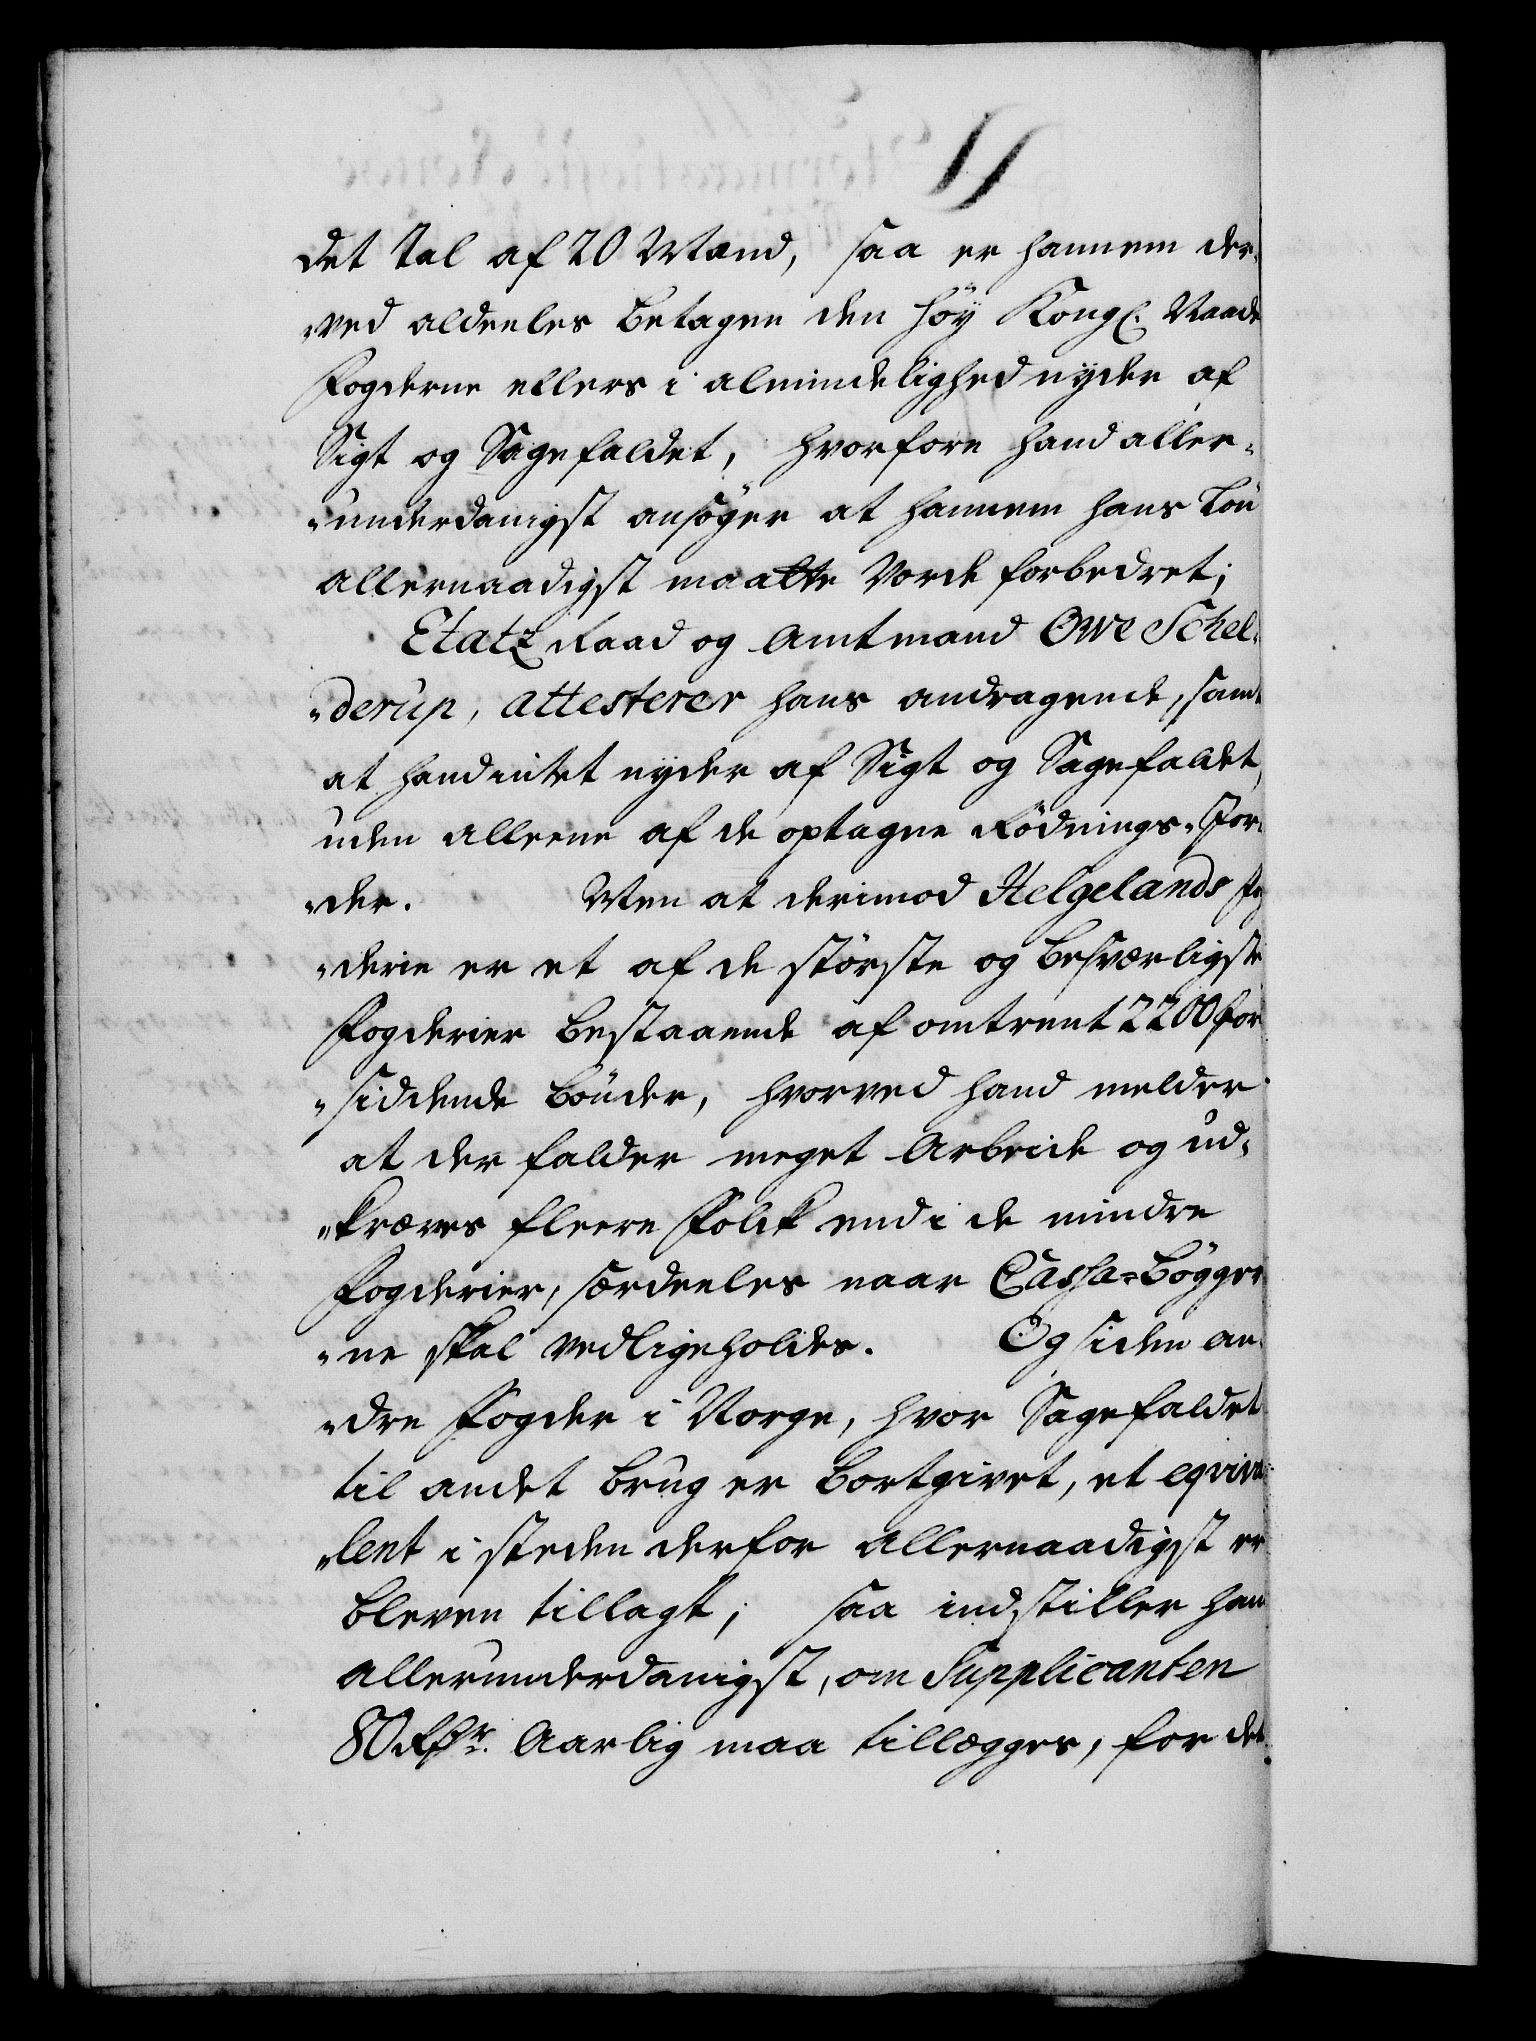 det Tal af 20 Mænd, saa er hannem der-
„ved aldeeles betagen den höy Kongl. Naade
Fogderne ellers i almindelighed nyder af
Sigt og Sagefaldet, hvorfore hand aller-
„underdanigst ansöger at hannem hans Lön
allernaadigst maatte Vorde forbedret;
Etatz Raad og Amtmand Owe Schel-
„derup, attesterer hans andragende, samt
at hand intet nyder af Sigt og Sagefaldet,
uden alleene af de optagne Rödnings-Jor-
„der. Men at derimod Helgelands Fog
„derie er et af de störste og besværligste
Fogderier bestaaende af omtrent 2200 for
„siddende bönder, hvorved hand melder
at der falder meget Arbeide og ud-
„kræves fleere Folck end i de mindre
Fogderier, særdeeles naar Cassa-Bögger
„ne skal vedligeholdes. Og siden an-
„dre Fogder i Norge, hvor Sagefaldet
til andet brug er bortgivet, et eqviva
„lent i steden derfor allernaadigst er
bleven tillagt; saa indstiller hand
allerunderdanigst, om Supplicanten
80 Rdr. Aarlig maa tillægges, for det